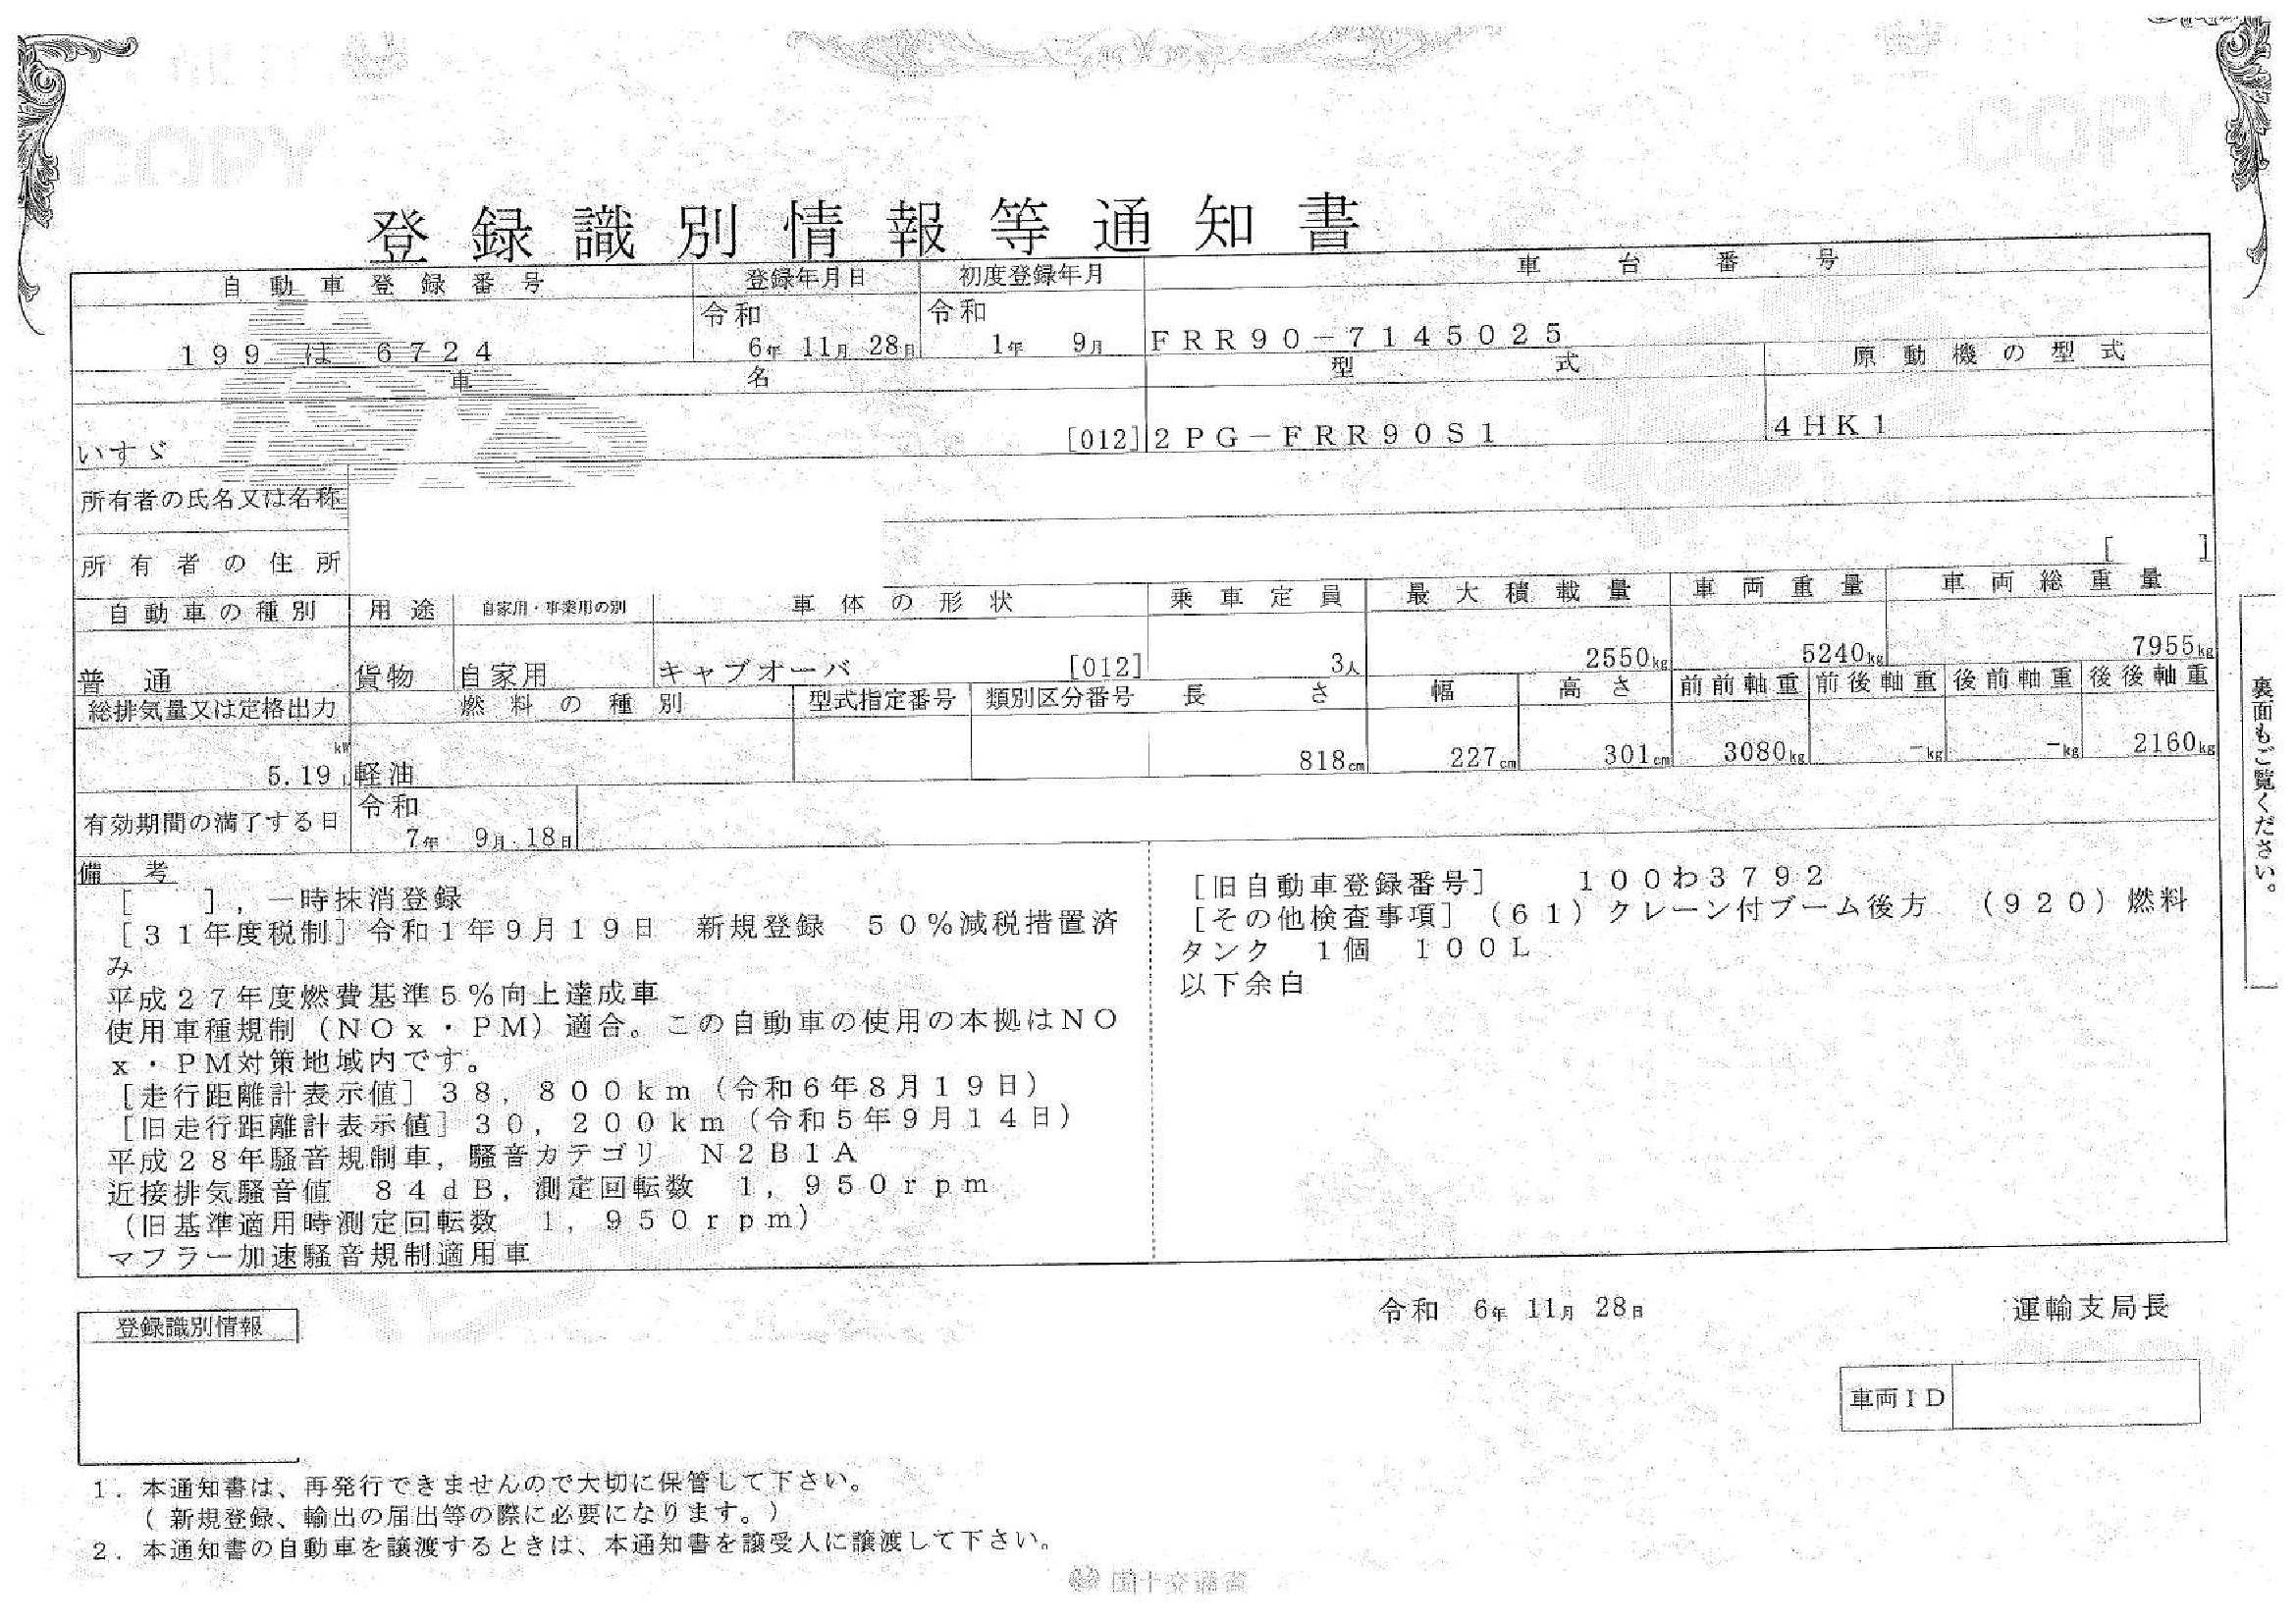 COPY COPY
登録識別情報等通知書
自動車登録番号 登録年月日 初度登録年月 車台番号
令和 令和
199 は 6724 6年 11月 28日 1年 9月 FRR90-7145025
車名 型式 原動機の型式
いすゞ [012] 2PG-FRR90S1 4HK1
所有者の氏名又は名称
所有者の住所 [ ]
自動車の種別 用途 自家用・事業用の別 車体の形状 乗車定員 最大積載量 車両重量 車両総重量
普通 貨物 自家用 キャブオーバ [012] 3人 2550kg 5240kg 7955kg
総排気量又は定格出力 燃料の種別 型式指定番号 類別区分番号 長さ 幅 高さ 前前軸重 前後軸重 後前軸重 後後軸重
kW
5.19 L 軽油 818cm 227cm 301cm 3080kg -kg -kg 2160kg
有効期間の満了する日 令和
7年 9月 18日
備考
[ ],一時抹消登録
[31年度税制]令和1年9月19日 新規登録 50%減税措置済
み
平成27年度燃費基準5%向上達成車
使用車種規制(NOx・PM)適合。この自動車の使用の本拠はNO
x・PM対策地域内です。
[走行距離計表示値]38,800km(令和6年8月19日)
[旧走行距離計表示値]30,200km(令和5年9月14日)
平成28年騒音規制車,騒音カテゴリ N2B1A
近接排気騒音値 84dB,測定回転数 1,950rpm
(旧基準適用時測定回転数 1,950rpm)
マフラー加速騒音規制適用車
[旧自動車登録番号] 100わ3792
[その他検査事項](61)クレーン付ブーム後方 (920)燃料
タンク 1個 100L
以下余白
裏面もご覧ください。
令和 6年 11月 28日 運輸支局長
登録識別情報
車両ID
1.本通知書は、再発行できませんので大切に保管して下さい。
(新規登録、輸出の届出等の際に必要になります。)
2.本通知書の自動車を譲渡するときは、本通知書を譲受人に譲渡して下さい。